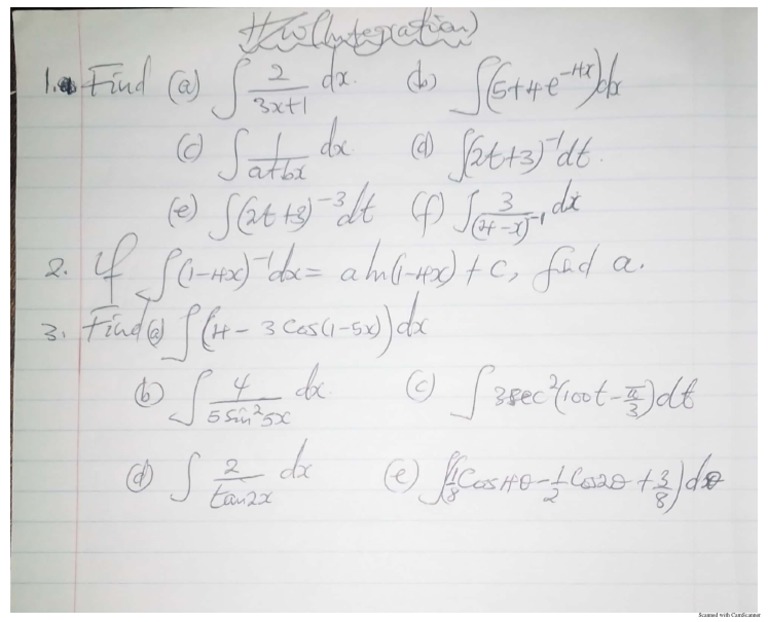 HW (Integration)
1. Find (a) ∫ 2/(3x+1) dx. (b) ∫(5+4e^(-4x))dx
(c) ∫ 1/(a+bx) dx (d) ∫(2t+3)^(-1) dt.
(e) ∫(2t+3)^(-3) dt (f) ∫ 3/(4-x)^(-1) dx
2. If ∫(1-4x)^(-1) dx = a ln(1-4x) + c, find a.
3. Find (a) ∫(4 - 3 cos(1-5x)) dx
(b) ∫ 4/(5 sin²5x) dx. (c) ∫ 3sec²(100t - π/3) dt
(d) ∫ 2/(tan2x) dx (e) ∫(1/8 Cos4θ - 1/2 Cos2θ + 3/8) dθ
Scanned with CamScanner